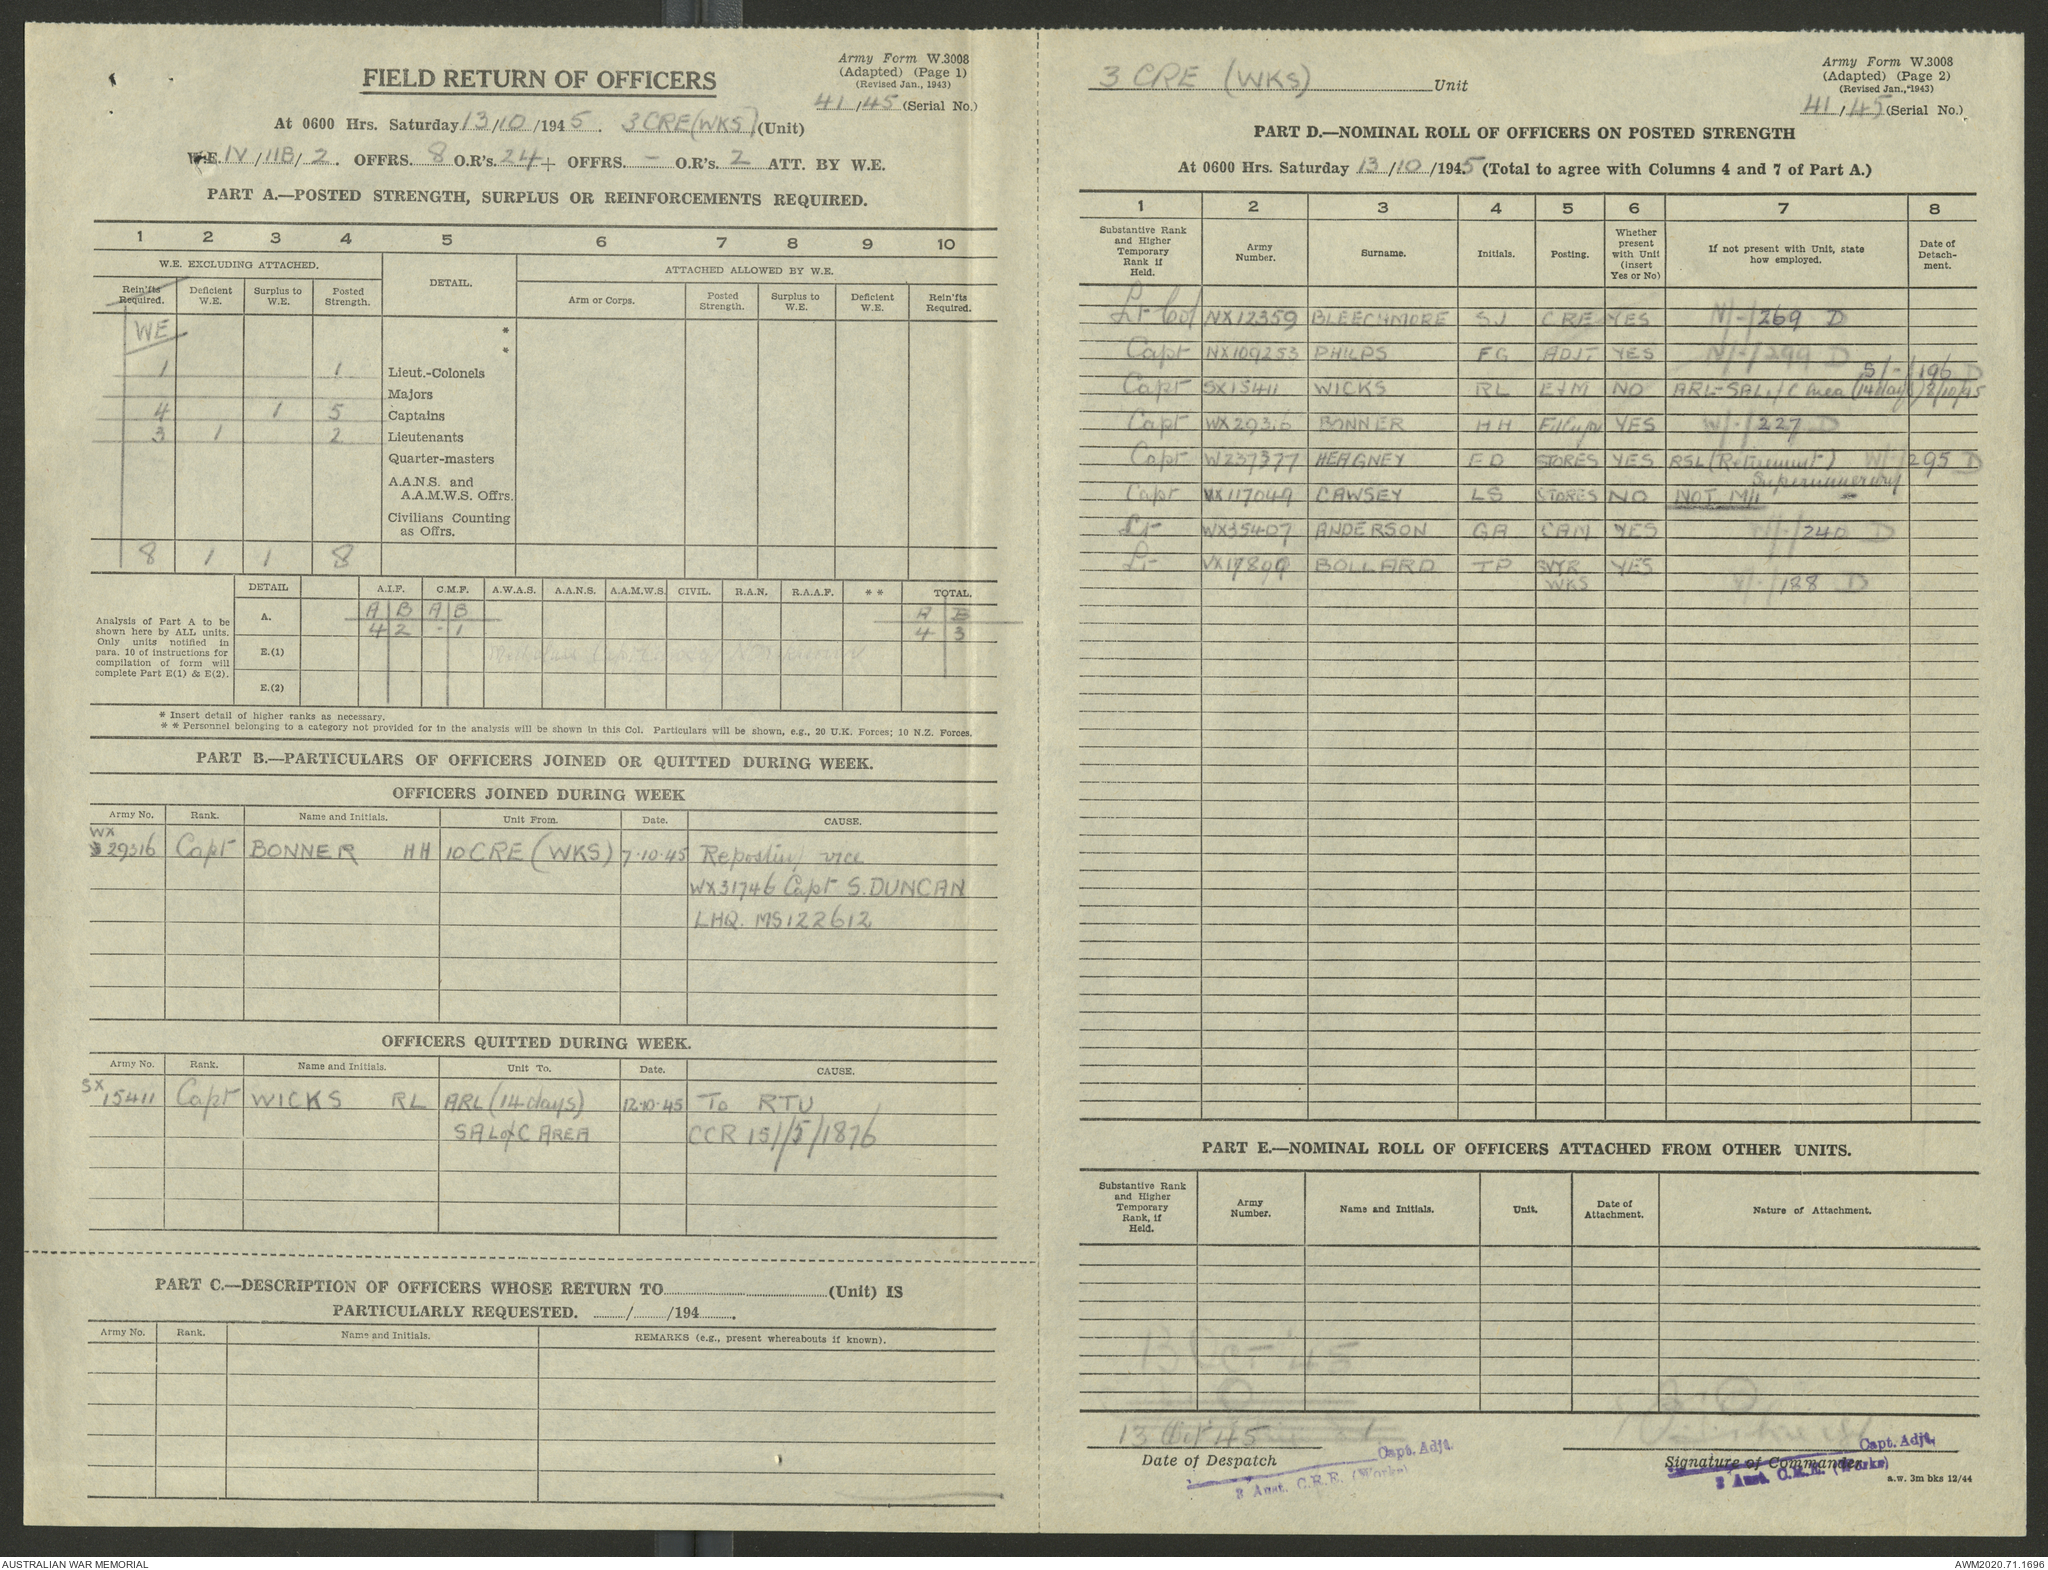 Army Form W.3008
(Adapted) (Page 1)
(Revised Jan., 1943)
FIELD RETURN OF OFFICERS
41/45 (Serial No.)
At 0600 Hrs. Saturday 13/10/1945. 3 CRE (WKS) (Unit)
W.E. IV/11B/2. OFFRS. 8 O.R's. 24 + OFFRS. - O.R's. 2 ATT. BY W.E.
PART A.—POSTED STRENGTH, SURPLUS OR REINFORCEMENTS REQUIRED.
1 2 3 4 5 6 7 8 9 10
W.E. EXCLUDING ATTACHED. DETAIL. ATTACHED ALLOWED BY W.E.
Rein'fts Required. Deficient W.E. Surplus to W.E. Posted Strength. Arm or Corps. Posted Strength. Surplus to W.E. Deficient W.E. Rein'fts Required.
WE *
*
1 1 Lieut.-Colonels
Majors
4 1 5 Captains
3 1 2 Lieutenants
Quarter-masters
A.A.N.S. and
A.A.M.W.S. Offrs.
Civilians Counting
as Offrs.
8 1 1 8
DETAIL A.I.F. C.M.F. A.W.A.S. A.A.N.S. A.A.M.W.S. CIVIL. R.A.N. R.A.A.F. * * TOTAL.
Analysis of Part A to be
shown here by ALL units.
Only units notified in
para. 10 of instructions for
compilation of form will
complete Part E(1) & E(2).
A. A B A B A B
4 2 - 1 4 3
E.(1)
E.(2)
* Insert detail of higher ranks as necessary.
* * Personnel belonging to a category not provided for in the analysis will be shown in this Col. Particulars will be shown, e.g., 20 U.K. Forces; 10 N.Z. Forces.
PART B.—PARTICULARS OF OFFICERS JOINED OR QUITTED DURING WEEK.
OFFICERS JOINED DURING WEEK
Army No. Rank. Name and Initials. Unit From. Date. CAUSE.
WX
29316 Capt BONNER HH 10 CRE (WKS) 7.10.45 Reposting vice
WX31746 Capt S. DUNCAN
LHQ. MS122612
OFFICERS QUITTED DURING WEEK.
Army No. Rank. Name and Initials. Unit To. Date. CAUSE.
SX
15411 Capt WICKS RL ARL (14 days) 12.10.45 To RTU
SAL of C AREA CCR 151/5/1876
PART C.—DESCRIPTION OF OFFICERS WHOSE RETURN TO (Unit) IS
PARTICULARLY REQUESTED. / /194 .
Army No. Rank. Name and Initials. REMARKS (e.g., present whereabouts if known).
3 CRE (WKS) Unit
Army Form W.3008
(Adapted) (Page 2)
(Revised Jan., 1943)
41/45 (Serial No.)
PART D.—NOMINAL ROLL OF OFFICERS ON POSTED STRENGTH
At 0600 Hrs. Saturday 13/10/1945 (Total to agree with Columns 4 and 7 of Part A.)
1 2 3 4 5 6 7 8
Substantive Rank and Higher Temporary Rank if Held. Army Number. Surname. Initials. Posting. Whether present with Unit (insert Yes or No) If not present with Unit, state how employed. Date of Detach-ment.
Lt Col NX12359 BLEECHMORE SJ CRE YES N/-/269 D
Capt NX109253 PHILPS FG ADJT YES N/-/299 D
S/-/196 D
Capt SX15411 WICKS RL E+M NO ARL-SAL of C Area (14 days) 8/10/45
Capt WX29316 BONNER HH YES W/-/227 D
Capt W237377 HEAGNEY ED STORES YES RSL (Retirement) W/-/295 D
Supernumerary
Capt VX117049 CAWSEY LS STORES NO NOT MII
Lt WX35407 ANDERSON GA CAM YES W/-/240 D
Lt VX17899 BOLLARD TP SVYR YES
WKS V/-/188 D
PART E.—NOMINAL ROLL OF OFFICERS ATTACHED FROM OTHER UNITS.
Substantive Rank and Higher Temporary Rank, if Held. Army Number. Name and Initials. Unit. Date of Attachment. Nature of Attachment.
13 Oct 45
13 Oct 45
Date of Despatch
Capt. Adjt.
3 Aust. C.R.E. (Works)
Signature of Commander
Capt. Adjt.
3 Aust. C.R.E. (Works)
a.w. 3m bks 12/44
AUSTRALIAN WAR MEMORIAL
AWM2020.71.1696